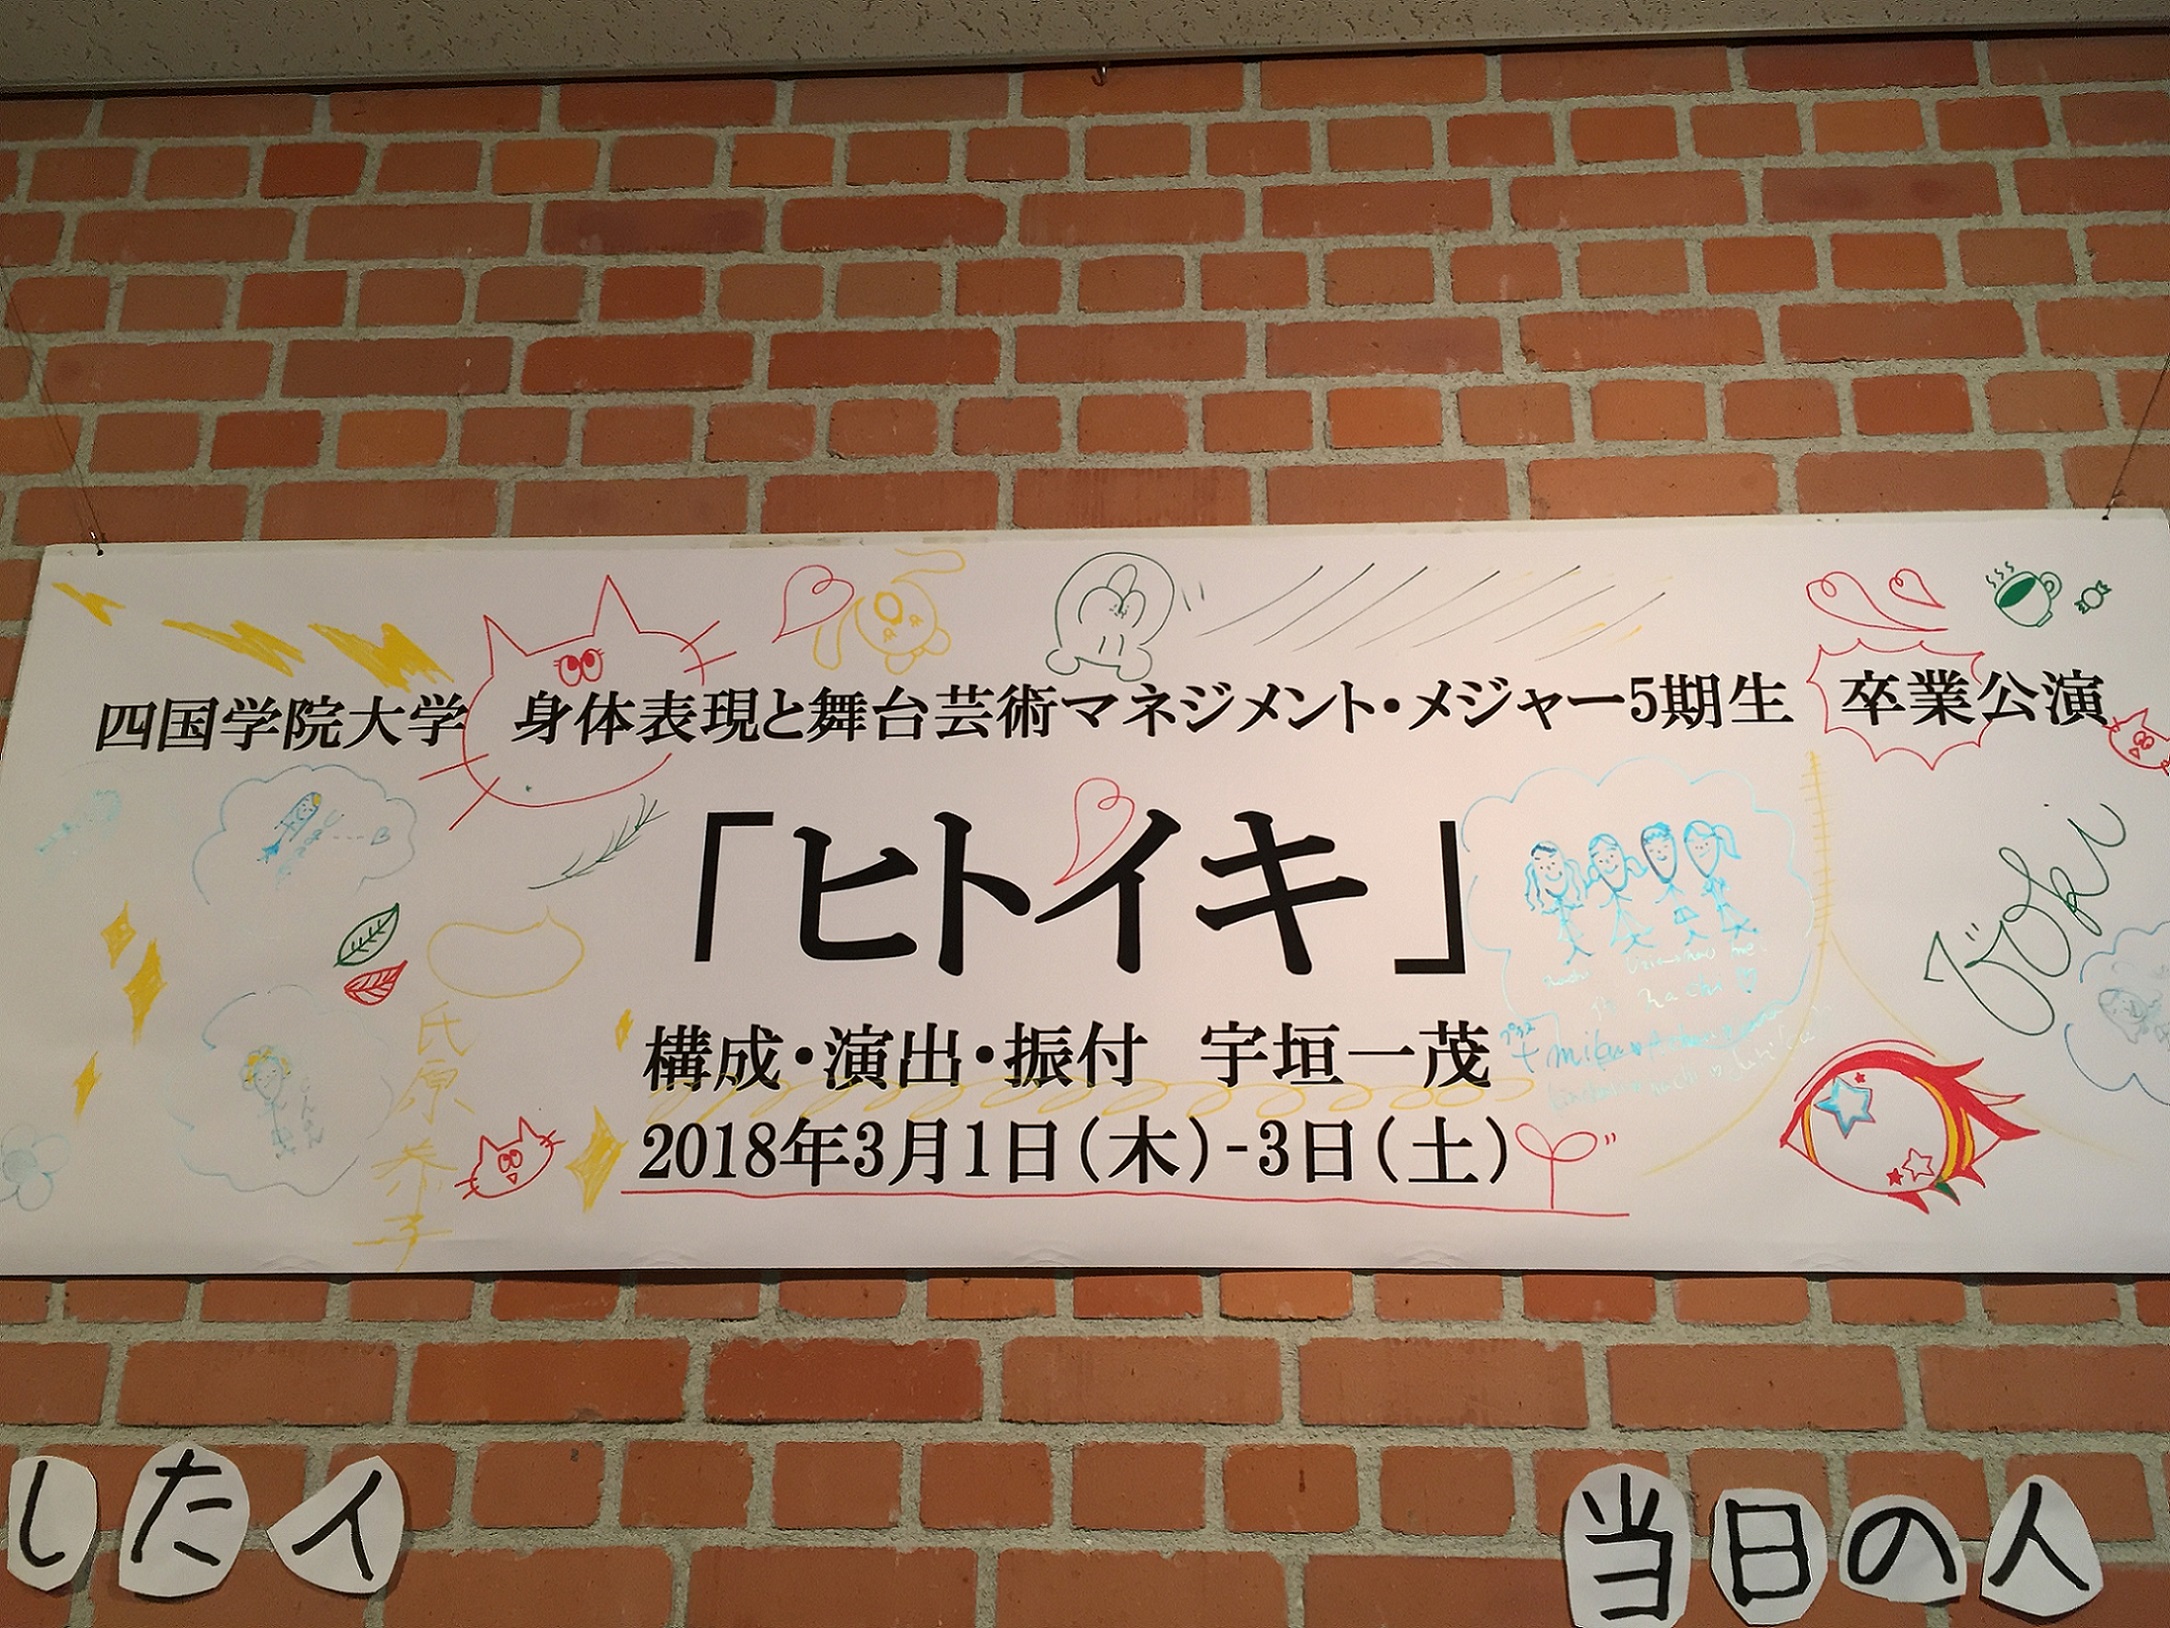 四国学院大学 身体表現と舞台芸術マネジメント・メジャー5期生 卒業公演
「ヒトイキ」
構成・演出・振付 宇垣一茂
2018年3月1日(木)-3日(土)
した人
当日の人